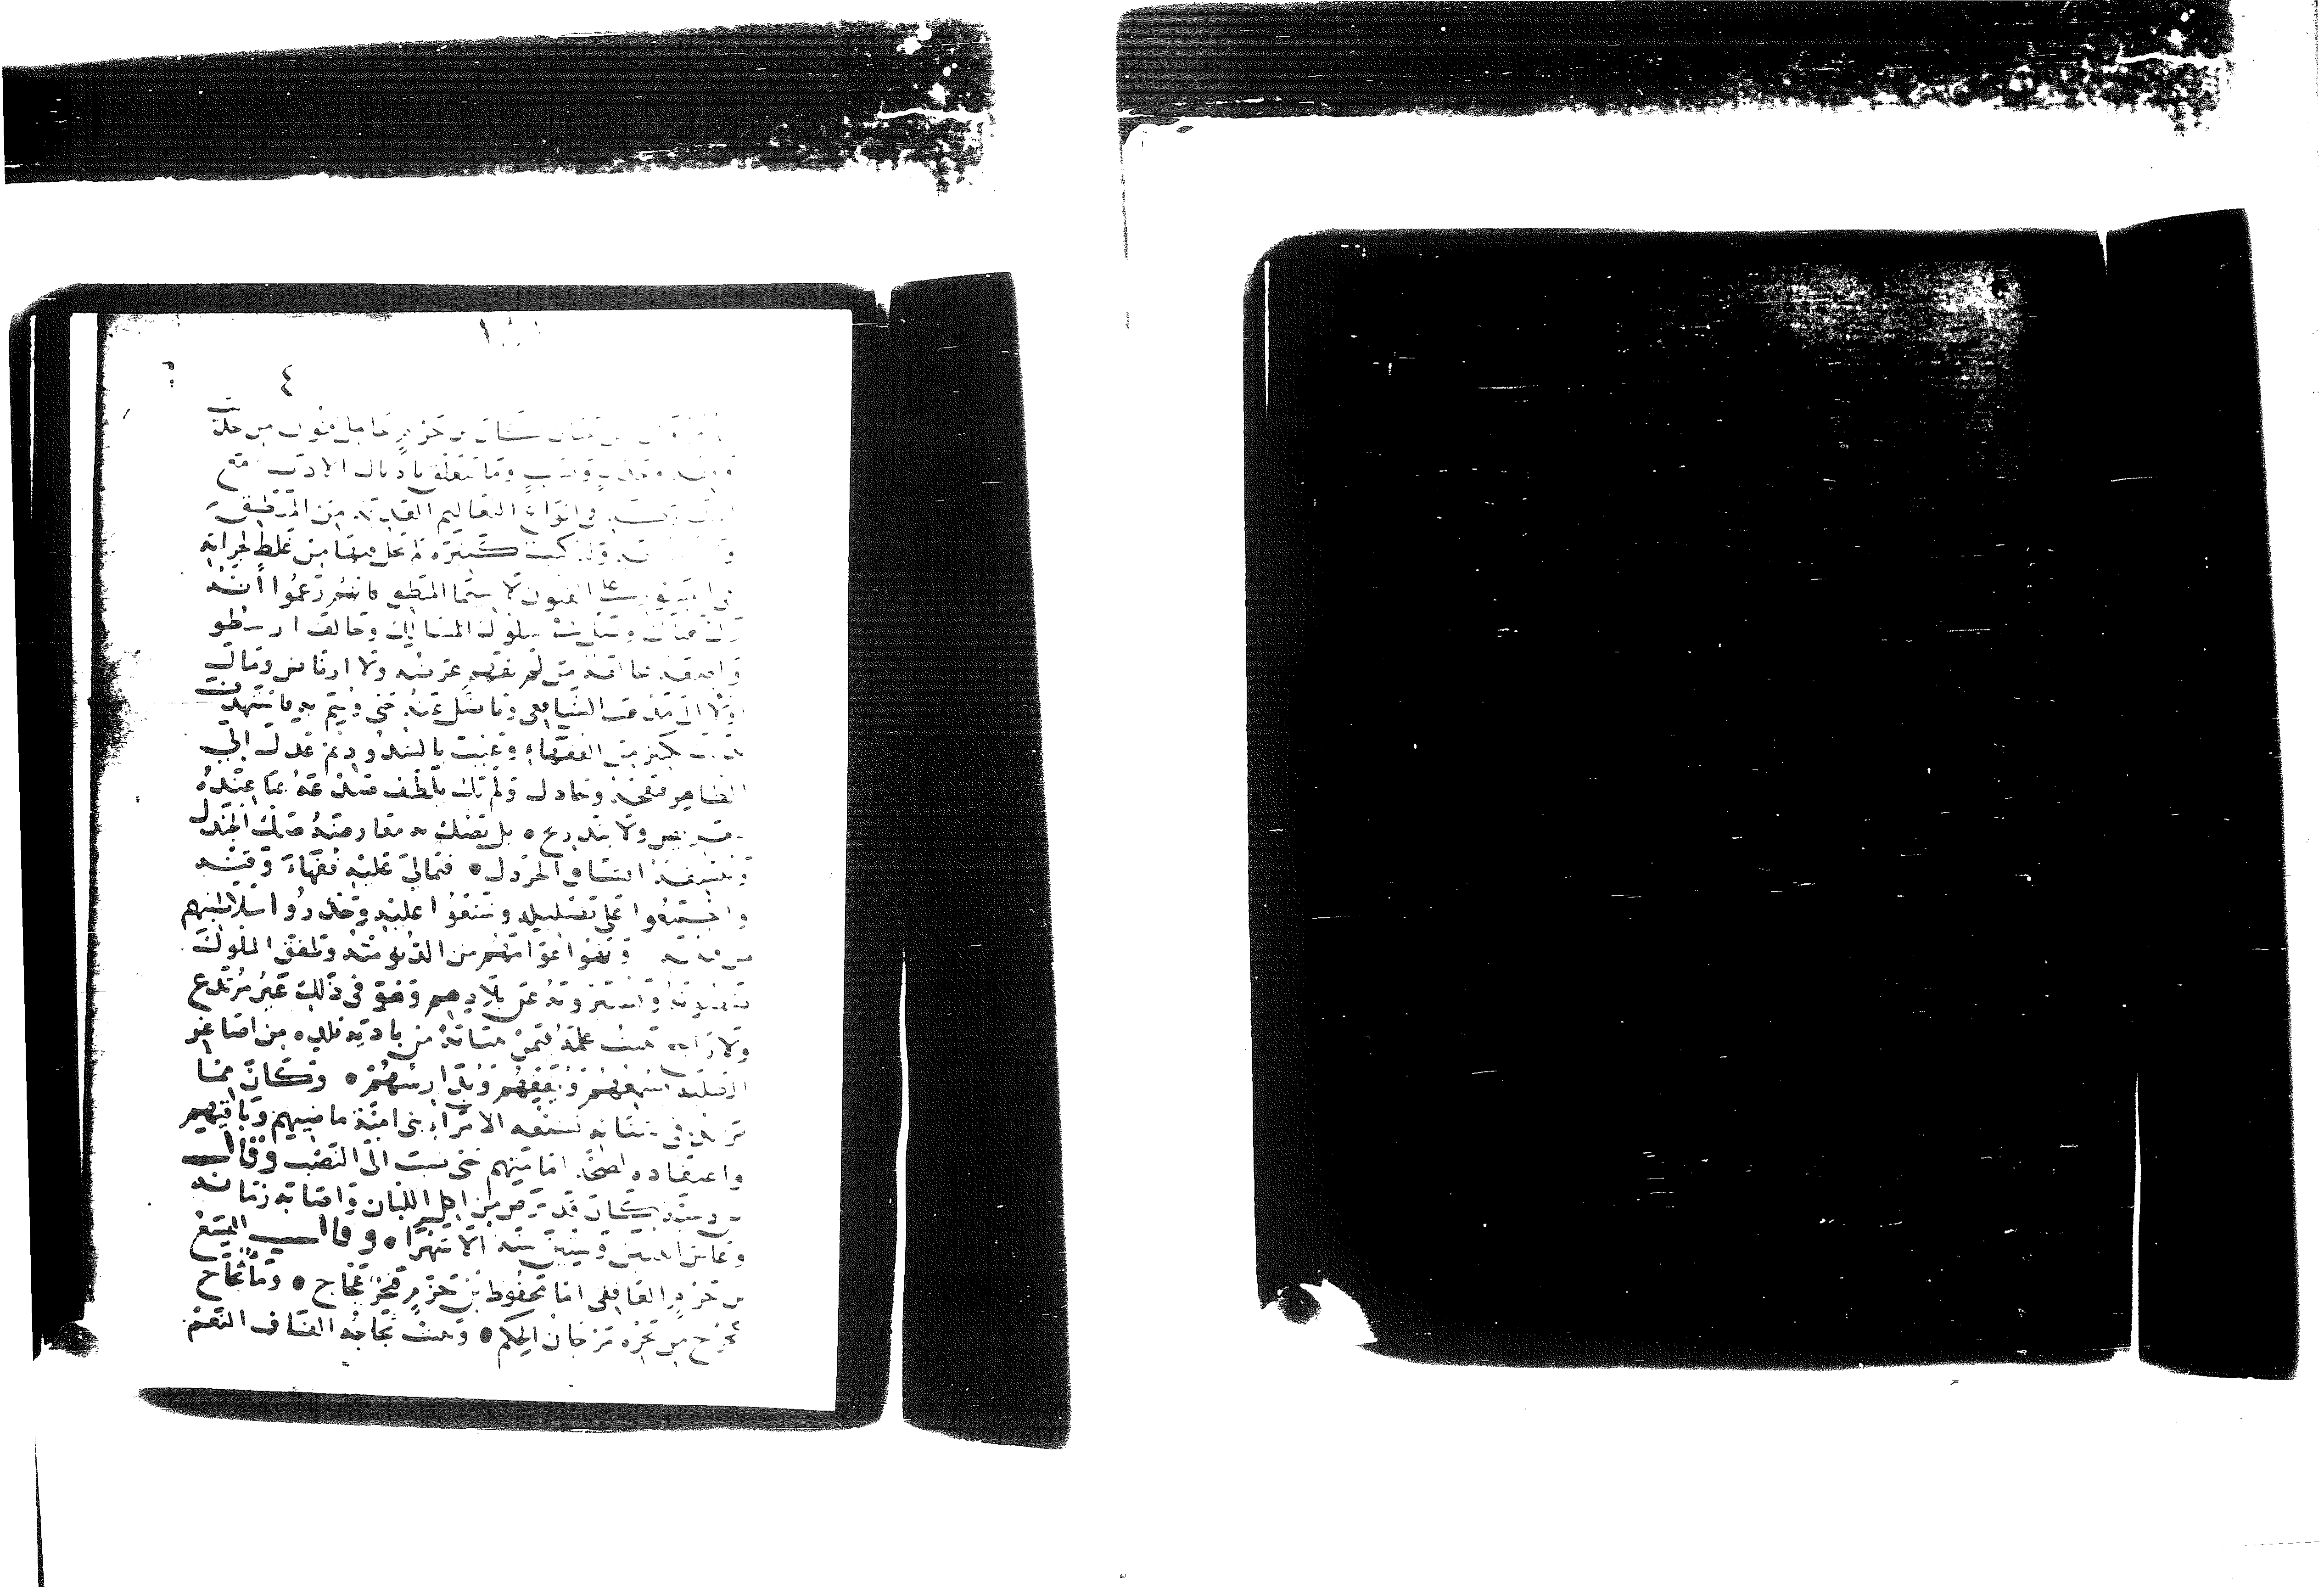 ٤
حزم حامل فنون من حديث
وما يتعلق باذيال الادب مع
في انواع التعاليم القديمة من المنطق
كتب كثيرة لم يخل فيها من غلط لجرأته
في التسور على الفنون لا سيما المنطق فانهم زعموا أنه
زل هنالك وضل في سلوك المسالك وخالف ارسطو
واضعه مخالفة من لم يفهم غرضه ولا ارتاض ومال
اولا الى مذهب الشافعي وناضل عنه حتى وسم به فاستهدف
بذلك لكثير من الفقهاء وعيب بالشذوذ ثم عدل الى
الظاهر فنقحه وجادل ولم يك يلطف صدعه بما عنده
بتعريض ولا بتدريج • بل يصك به معارضه صك الجندل
وينشقه انشاق الخردل • فتمالى عليه فقهاء وقته
واجتمعوا على تضليله وشنعوا عليه وحذروا سلاطينهم
من فتنته ونهوا عوامهم من الدنو منه وطفق الملوك
يقصونه ويسيرونه عن بلادهم وهو في ذلك غير مرتدع
ولا راجع يبث علمه فيمن ينتابه من بادية بلده من اصاغر
الطلبة يسمعهم ويفقههم ويدارسهم • وكان مما
يزيد في شنآنه تشيعه لامراء بني امية ماضيهم وباقيهم
واعتقاده لصحة امامتهم حتى نسب الى النصب وقال
بن دحية كان قد برص من اكل اللبان واصابه زمانة
وعاش اثنتين وسبعين سنة الا شهرا • وقال اليسع
بن حزم الغافقي اما محفوظ بن حزم فبحر عجاج • وماء ثجاج
يخرج من بحره مرجان الحكم • وينبت بثجاجه الفاف النعم